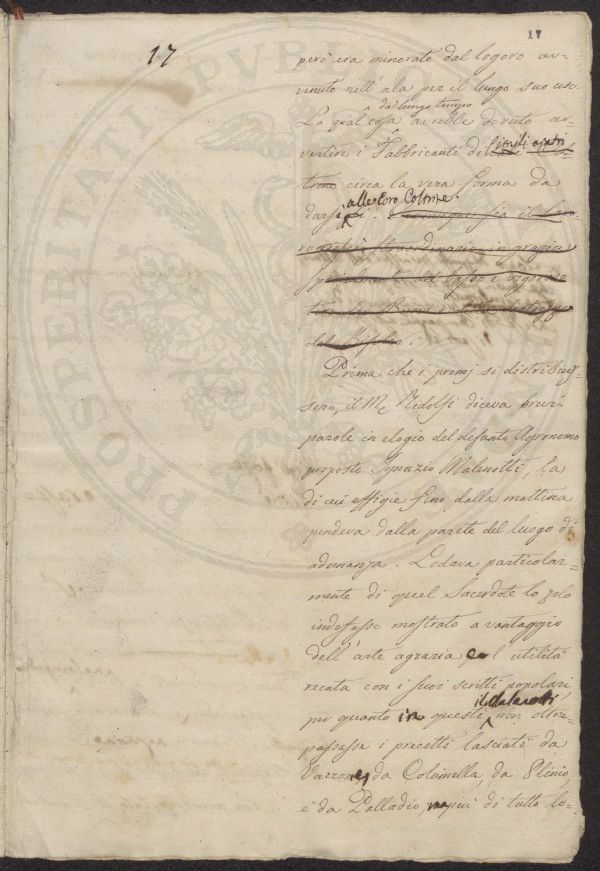 17
17
però era minorato dal logoro av-
venuto nell'ala per il lungo suo uso.
da lungo tempo
La qual cosa avrebbe dovuto av-
vertire i Fabbricanti di simili aratri
circa la vera forma da
alle loro Coltrine.
darsi
Prima che i premj si distribuis-
sero, il Mc Ridolfi diceva brevi
parole in elogio del defunto Agronomo
proposto Ignazio Malenotti, la
di cui effigie fino dalla mattina
pendeva dalla parete del luogo di
adunanza. Lodava particolar=
mente di quel Sacerdote lo zelo
indefesso mostrato a vantaggio
dell'arte agraria, e l'utilità
recata con i suoi scritti popolari,
il Malenotti
per quanto in questi non oltre-
passasse i precetti lasciati da
Varrone, da Columella, da Plinio,
e da Palladio, ma più di tutto lo-
PROSPERITATI PVBLICAE